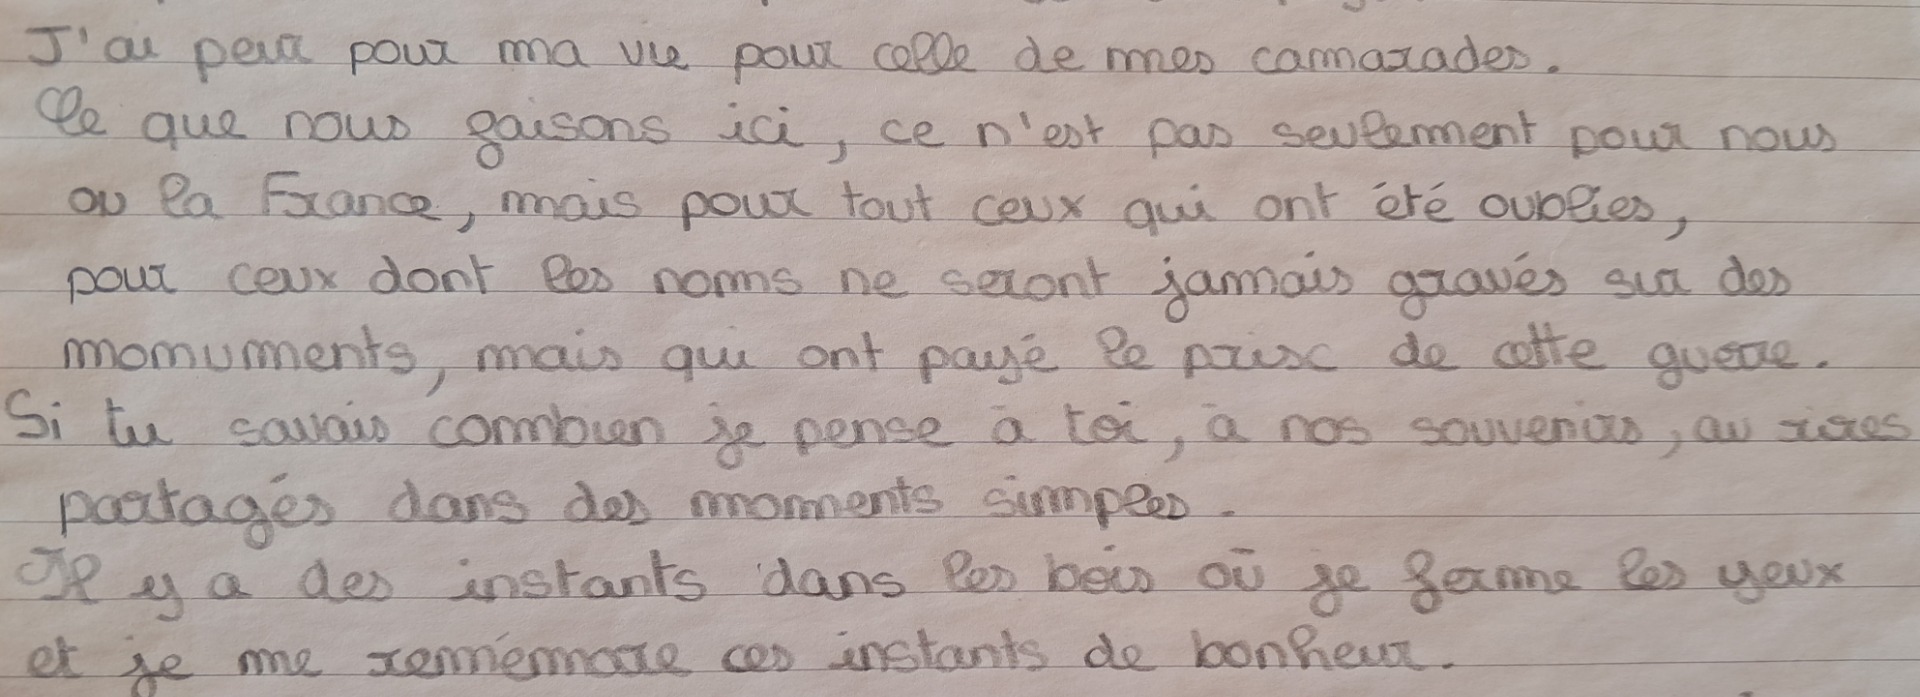 J'ai peur pour ma vie pour celle de mes camarades.
Ce que nous faisons ici, ce n'est pas seulement pour nous
ou la France, mais pour tout ceux qui ont été oubliés,
pour ceux dont les noms ne seront jamais gravés sur des
momuments, mais qui ont payé le prix de cette guerre.
Si tu savais combien je pense à toi, à nos souvenirs, au rires
partagés dans des moments simples.
Il y a des instants dans les bois où je ferme les yeux
et je me remémore ces instants de bonheur.